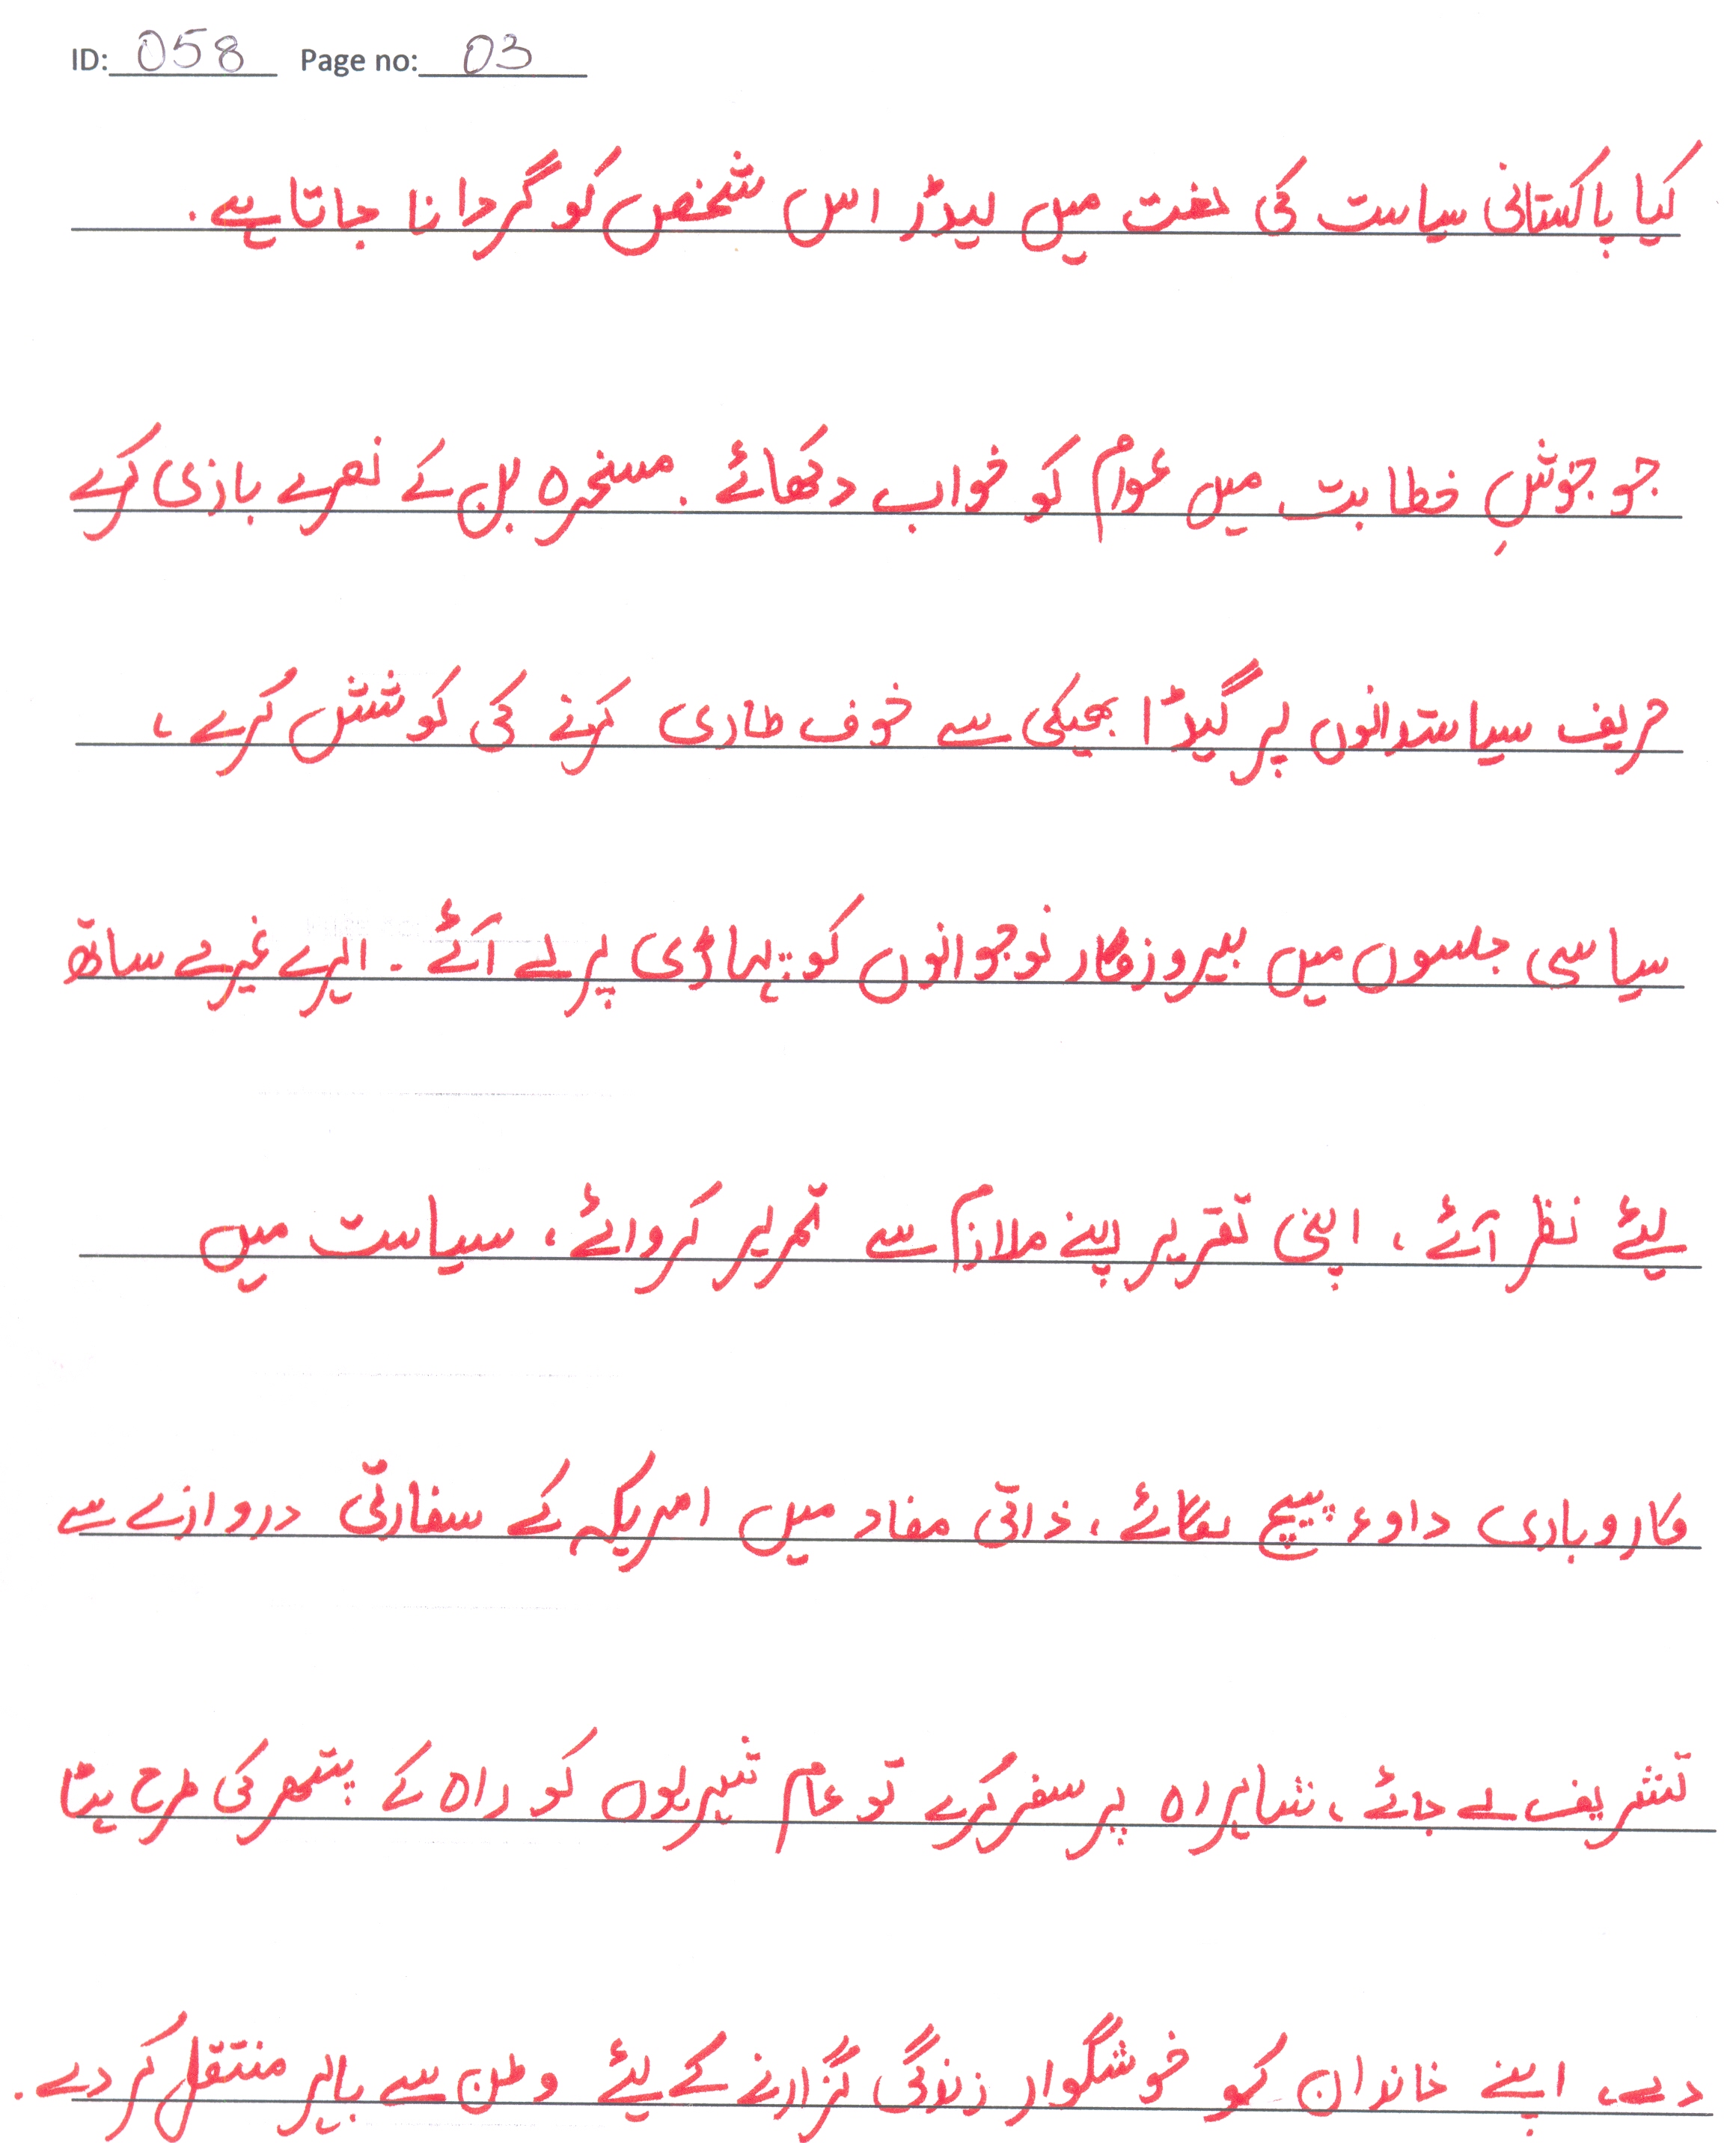 ID: 058 Page no: 03
کیا پاکستانی سیاست کی لغت میں لیڈر اس شخص کو گردانا جاتا ہے.
جو جوشِ خطابت میں عوام کو خواب دکھائے. مسخرہ بن کے نعرے بازی کرے
حریف سیاستدانوں پر گیڈر بھبکی سے خوف طاری کرنے کی کوشش کرے،
سیاسی جلسوں میں بیروزگار نوجوانوں کو یہاڑی پر لے آئے ۔ ایرے غیرے ساتھ
لیئے نظر آئے، اپنی تقریر اپنے ملازم سے تحریر کروائے، سیاست میں
کاروباری داوء پیچ لگائے، ذاتی مفاد میں امریکہ کے سفارتی دروازے سے
تشریف لے جائے، شاہراہ پر سفر کرے تو عام شہریوں کو راہ کے پتھر کی طرح ہٹا
دے، اپنے خاندان کو خوشگوار زندگی گزارنے کے لیئے وطن سے باہر منتقل کر دے.